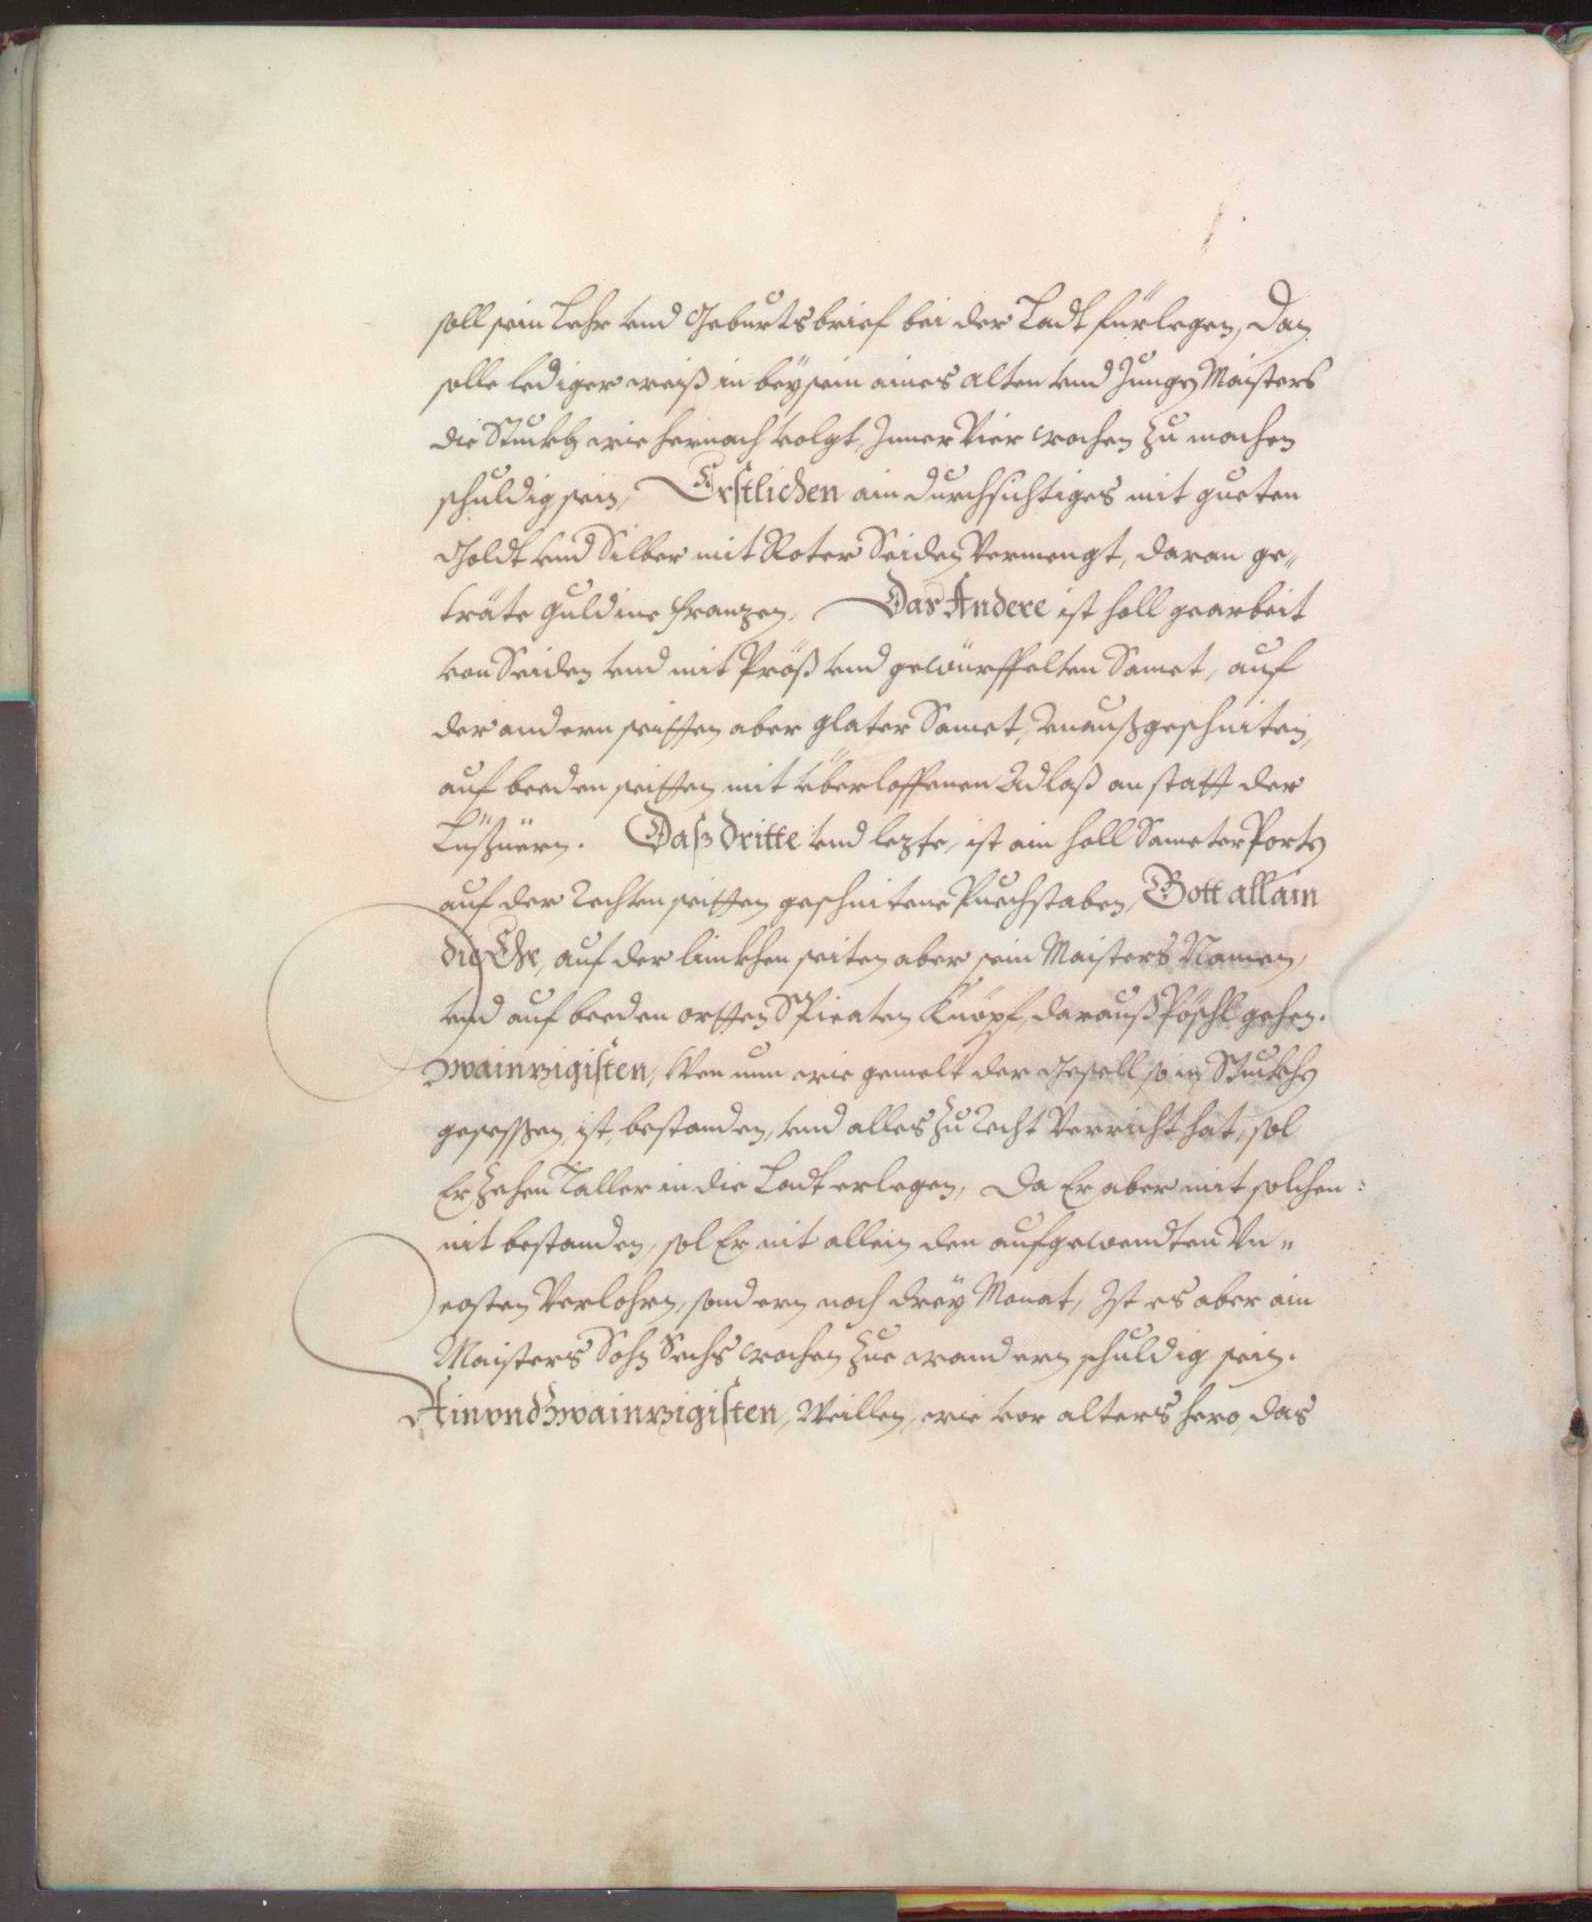 soll sein Lehr vnd Geburtsbrief bei der Ladt fürlegen, dan
solle lediger weiß in beysein aines alten vnd Jungen Maisters
die Stuckh wie hernach volgt, Inner Vier wochen zu machen
schuldig sein, Erstlichen ain durchsichtiges mit gueten
Goldt vnd Silber mit Roter Seiden Vermengt, daran ge„
träte guldine Franzen. Das Andere ist holl gearbeit
von Seiden vnd mit Pröß vnd gewürffelten Samet, auf
der andern seitten aber glater Samet, vnaußgeschniten,
auf beeden seitten mit überloffenen Adlaß an statt der
Das dritte vnd lezte, ist ain holl Sameter Porten
auf der rechten seitten geschnitene Puechstaben, Gott allain
die Ehr, auf der linkhen seiten aber sein Maisters Namen,
vnd auf beeden ortten Knöpf, darauß Pöschl gehen.
Zwainzigisten, Wen nun wie gemelt der Gesell so in Stuckhen
gesessen ist, bestanden, vnd alles zu recht Verricht hat, sol
Er zehen Taller in die Ladt erlegen, Da Er aber mit solchen:
nit bestanden, sol Er nit allein den aufgewendten Vn„
costen Verlohrn, sondern noch drey Monat, Ist es aber ain
Maisters Sohn Sechs wochen zue wandern schuldig sein.
Ainvndzwainzigisten, Weillen, wie von alters hero, das